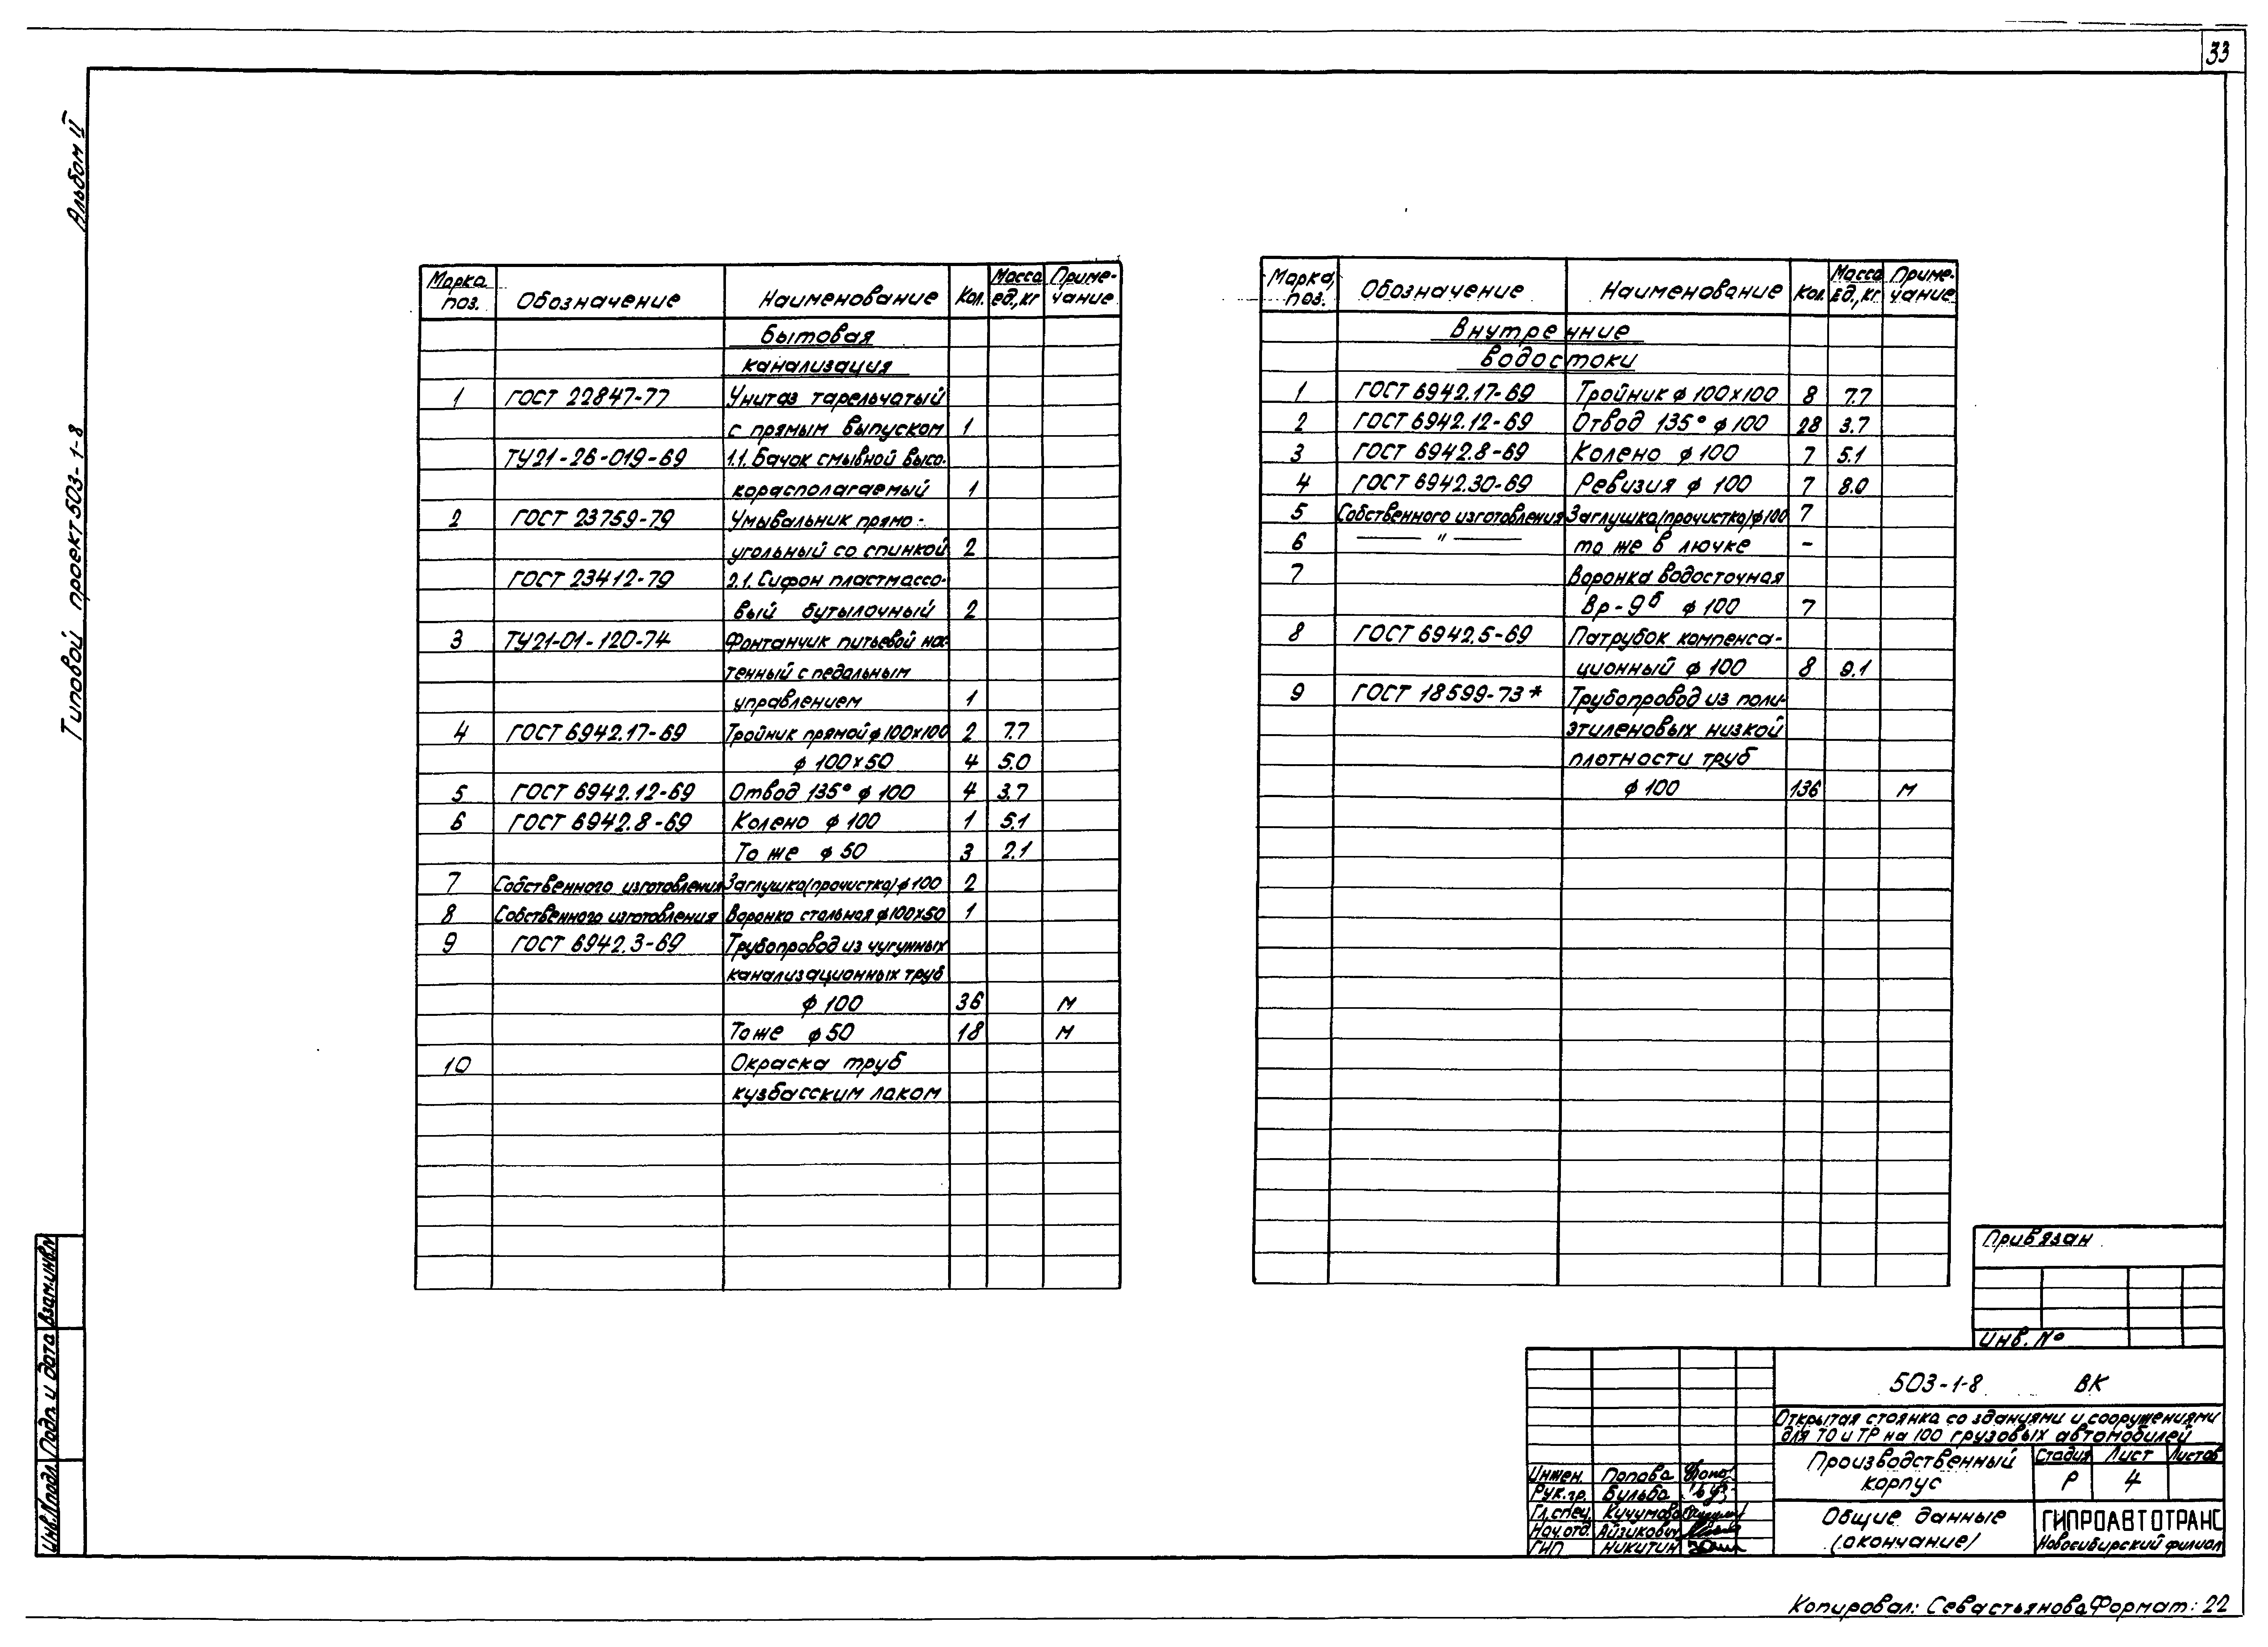 33
Альбом II
Типовой проект 503-1-8
Марка поз. Обозначение Наименование Кол. Масса ед,кг Приме-чание
Бытовая
канализация
1 ГОСТ 22847-77 Унитаз тарельчатый
с прямым выпуском 1
ТУ21-26-019-69 1.1. Бачок смывной высо-
корасполагаемый 1
2 ГОСТ 23759-79 Умывальник прямо-
угольный со спинкой 2
ГОСТ 23412-79 2.1. Сифон пластмассо-
вый бутылочный 2
3 ТУ21-01-120-74 Фонтанчик питьевой нас-
тенный с педальным
управлением 1
4 ГОСТ 6942.17-69 Тройник прямой ф100х100 2 7.7
ф 100х50 4 5.0
5 ГОСТ 6942.12-69 Отвод 135° ф 100 4 3.7
6 ГОСТ 6942.8-69 Колено ф 100 1 5.1
То же ф 50 3 2.1
7 Собственного изготовления Заглушка(прочистка)ф100 2
8 Собственного изготовления Воронка стальная ф100х50 1
9 ГОСТ 6942.3-69 Трубопровод из чугунных
канализационных труб
ф 100 36 м
То же ф 50 18 м
10 Окраска труб
кузбасским лаком
Марка, поз. Обозначение Наименование Кол. Масса ед.,кг Приме-чание
Внутренние
водостоки
1 ГОСТ 6942.17-69 Тройник ф 100х100 8 7.7
2 ГОСТ 6942.12-69 Отвод 135° ф 100 28 3.7
3 ГОСТ 6942.8-69 Колено ф 100 7 5.1
4 ГОСТ 6942.30-69 Ревизия ф 100 7 8.0
5 Собственного изготовления Заглушка(прочистка)ф100 7
6 — " — то же в лючке -
7 Воронка водосточная
Вр-9б ф 100 7
8 ГОСТ 6942.5-69 Патрубок компенса-
ционный ф 100 8 9.1
9 ГОСТ 18599-73* Трубопровод из поли-
этиленовых низкой
плотности труб
ф 100 136 м
Привязан
Инв. №
503-1-8 ВК
Открытая стоянка со зданиями и сооружениями
для ТО и ТР на 100 грузовых автомобилей
Производственный
корпус
Стадия Лист Листов
Р 4
Общие данные
(окончание)
ГИПРОАВТОТРАНС
Новосибирский филиал
Инжен. Попова
Рук.гр. Бульба
Гл.спец. Кучумова
Нач.отд. Айзикович
ГИП Никитин
Взам.инв.N
Подп. и дата
Инв.N подл.
Копировал: Севастьянова Формат: 22